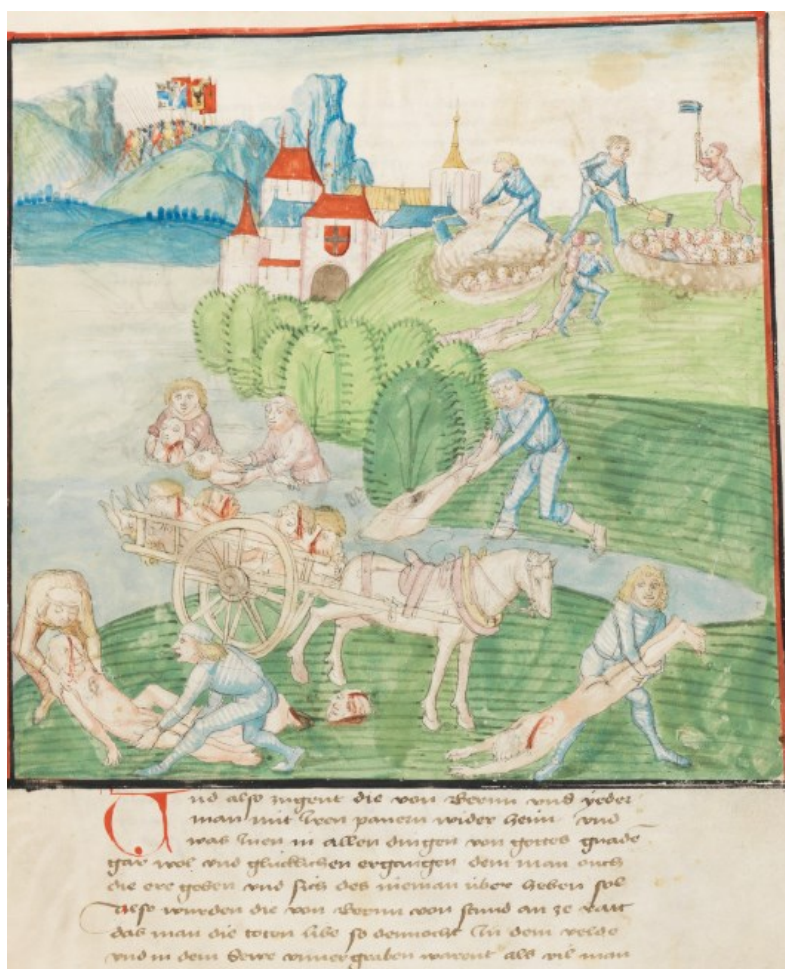 Und also zugent die von Bernn und yeder
man mit iren panern wider heim und
was inen in allen dingen von gottes gnade
gar wol und glücklichen ergangen dem man ouch
die ere geben und sich des nieman über heben sol
also wurden die von Bernn von stund an ze ratt
das man die toten libe so dennocht in dem velde
und in dem sewe unvergraben warent als vil man